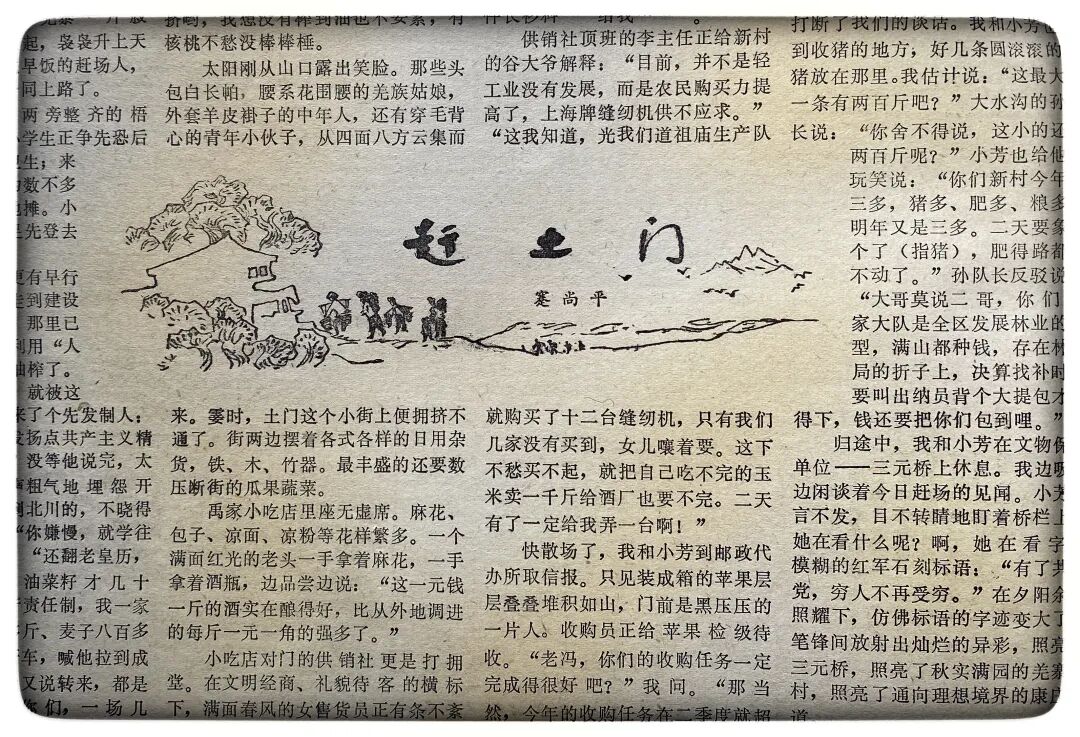 起，袅袅升上天
早饭的赶场人，
同上路了。
两旁整齐的梧
学生正争先恐后
卫生；来
数不多
地摊。小
先登去
更有早行
走到建设
那里已
利用“人
油榨了。
就被这
来了个先发制人：
发扬点共产主义精
没等他说完，太
声粗气地埋怨开
到北川的，不晓得
“你嫌慢，就学往
“还翻老皇历，
油菜籽才几十
责任制，我一家
斤、麦子八百多
车，喊他拉到成
又说转来，都是
你们，一场几
挤哟，我想没有榨到油也不要紧，有
核桃不愁没棒棒棰。
太阳刚从山口露出笑脸。那些头
包白长帕，腰系花围腰的羌族姑娘，
外套羊皮褂子的中年人，还有穿毛背
心的青年小伙子，从四面八方云集而
赶土门
蹇尚平
来。霎时，土门这个小街上便拥挤不
通了。街两边摆着各式各样的日用杂
货，铁、木、竹器。最丰盛的还要数
压断街的瓜果蔬菜。
禹家小吃店里座无虚席。麻花、
包子、凉面、凉粉等花样繁多。一个
满面红光的老头一手拿着麻花，一手
拿着酒瓶，边品尝边说：“这一元钱
一斤的酒实在酿得好，比从外地调进
的每斤一元一角的强多了。”
小吃店对门的供销社更是打拥
堂。在文明经商、礼貌待客的横标
下，满面春风的女售货员正有条不紊
供销社顶班的李主任正给新村
的谷大爷解释：“目前，并不是轻
工业没有发展，而是农民购买力提
高了，上海牌缝纫机供不应求。”
“这我知道，光我们道祖庙生产队
就购买了十二台缝纫机，只有我们
几家没有买到，女儿嚷着要。这下
不愁买不起，就把自己吃不完的玉
米卖一千斤给酒厂也要不完。二天
有了一定给我弄一台啊！”
快散场了，我和小芳到邮政代
办所取信报。只见装成箱的苹果层
层叠叠堆积如山，门前是黑压压的
一片人。收购员正给苹果检级待
收。“老冯，你们的收购任务一定
完成得很好吧？”我问。“那当
然，今年的收购任务在二季度就超
打断了我们的谈话。我和小芳
到收猪的地方，好几条圆滚滚的
猪放在那里。我估计说：“这最大
一条有两百斤吧？”大水沟的孙
长说：“你舍不得说，这小的还
两百斤呢？”小芳也给他
玩笑说：“你们新村今年
三多，猪多、肥多、粮多
明年又是三多。二天要象
个了（指猪），肥得路都
不动了。”孙队长反驳说
“大哥莫说二哥，你们
家大队是全区发展林业的
型，满山都种钱，存在林
局的折子上，决算找补时
要叫出纳员背个大提包才
得下，钱还要把你们包到哩。”
归途中，我和小芳在文物保
单位——三元桥上休息。我边
边闲谈着今日赶场的见闻。小芳
言不发，目不转睛地盯着桥栏上
她在看什么呢？啊，她在看字
模糊的红军石刻标语：“有了共
党，穷人不再受穷。”在夕阳余
照耀下，仿佛标语的字迹变大了
笔锋间放射出灿烂的异彩，照亮
三元桥，照亮了秋实满园的羌寨
村，照亮了通向理想境界的康庄
道